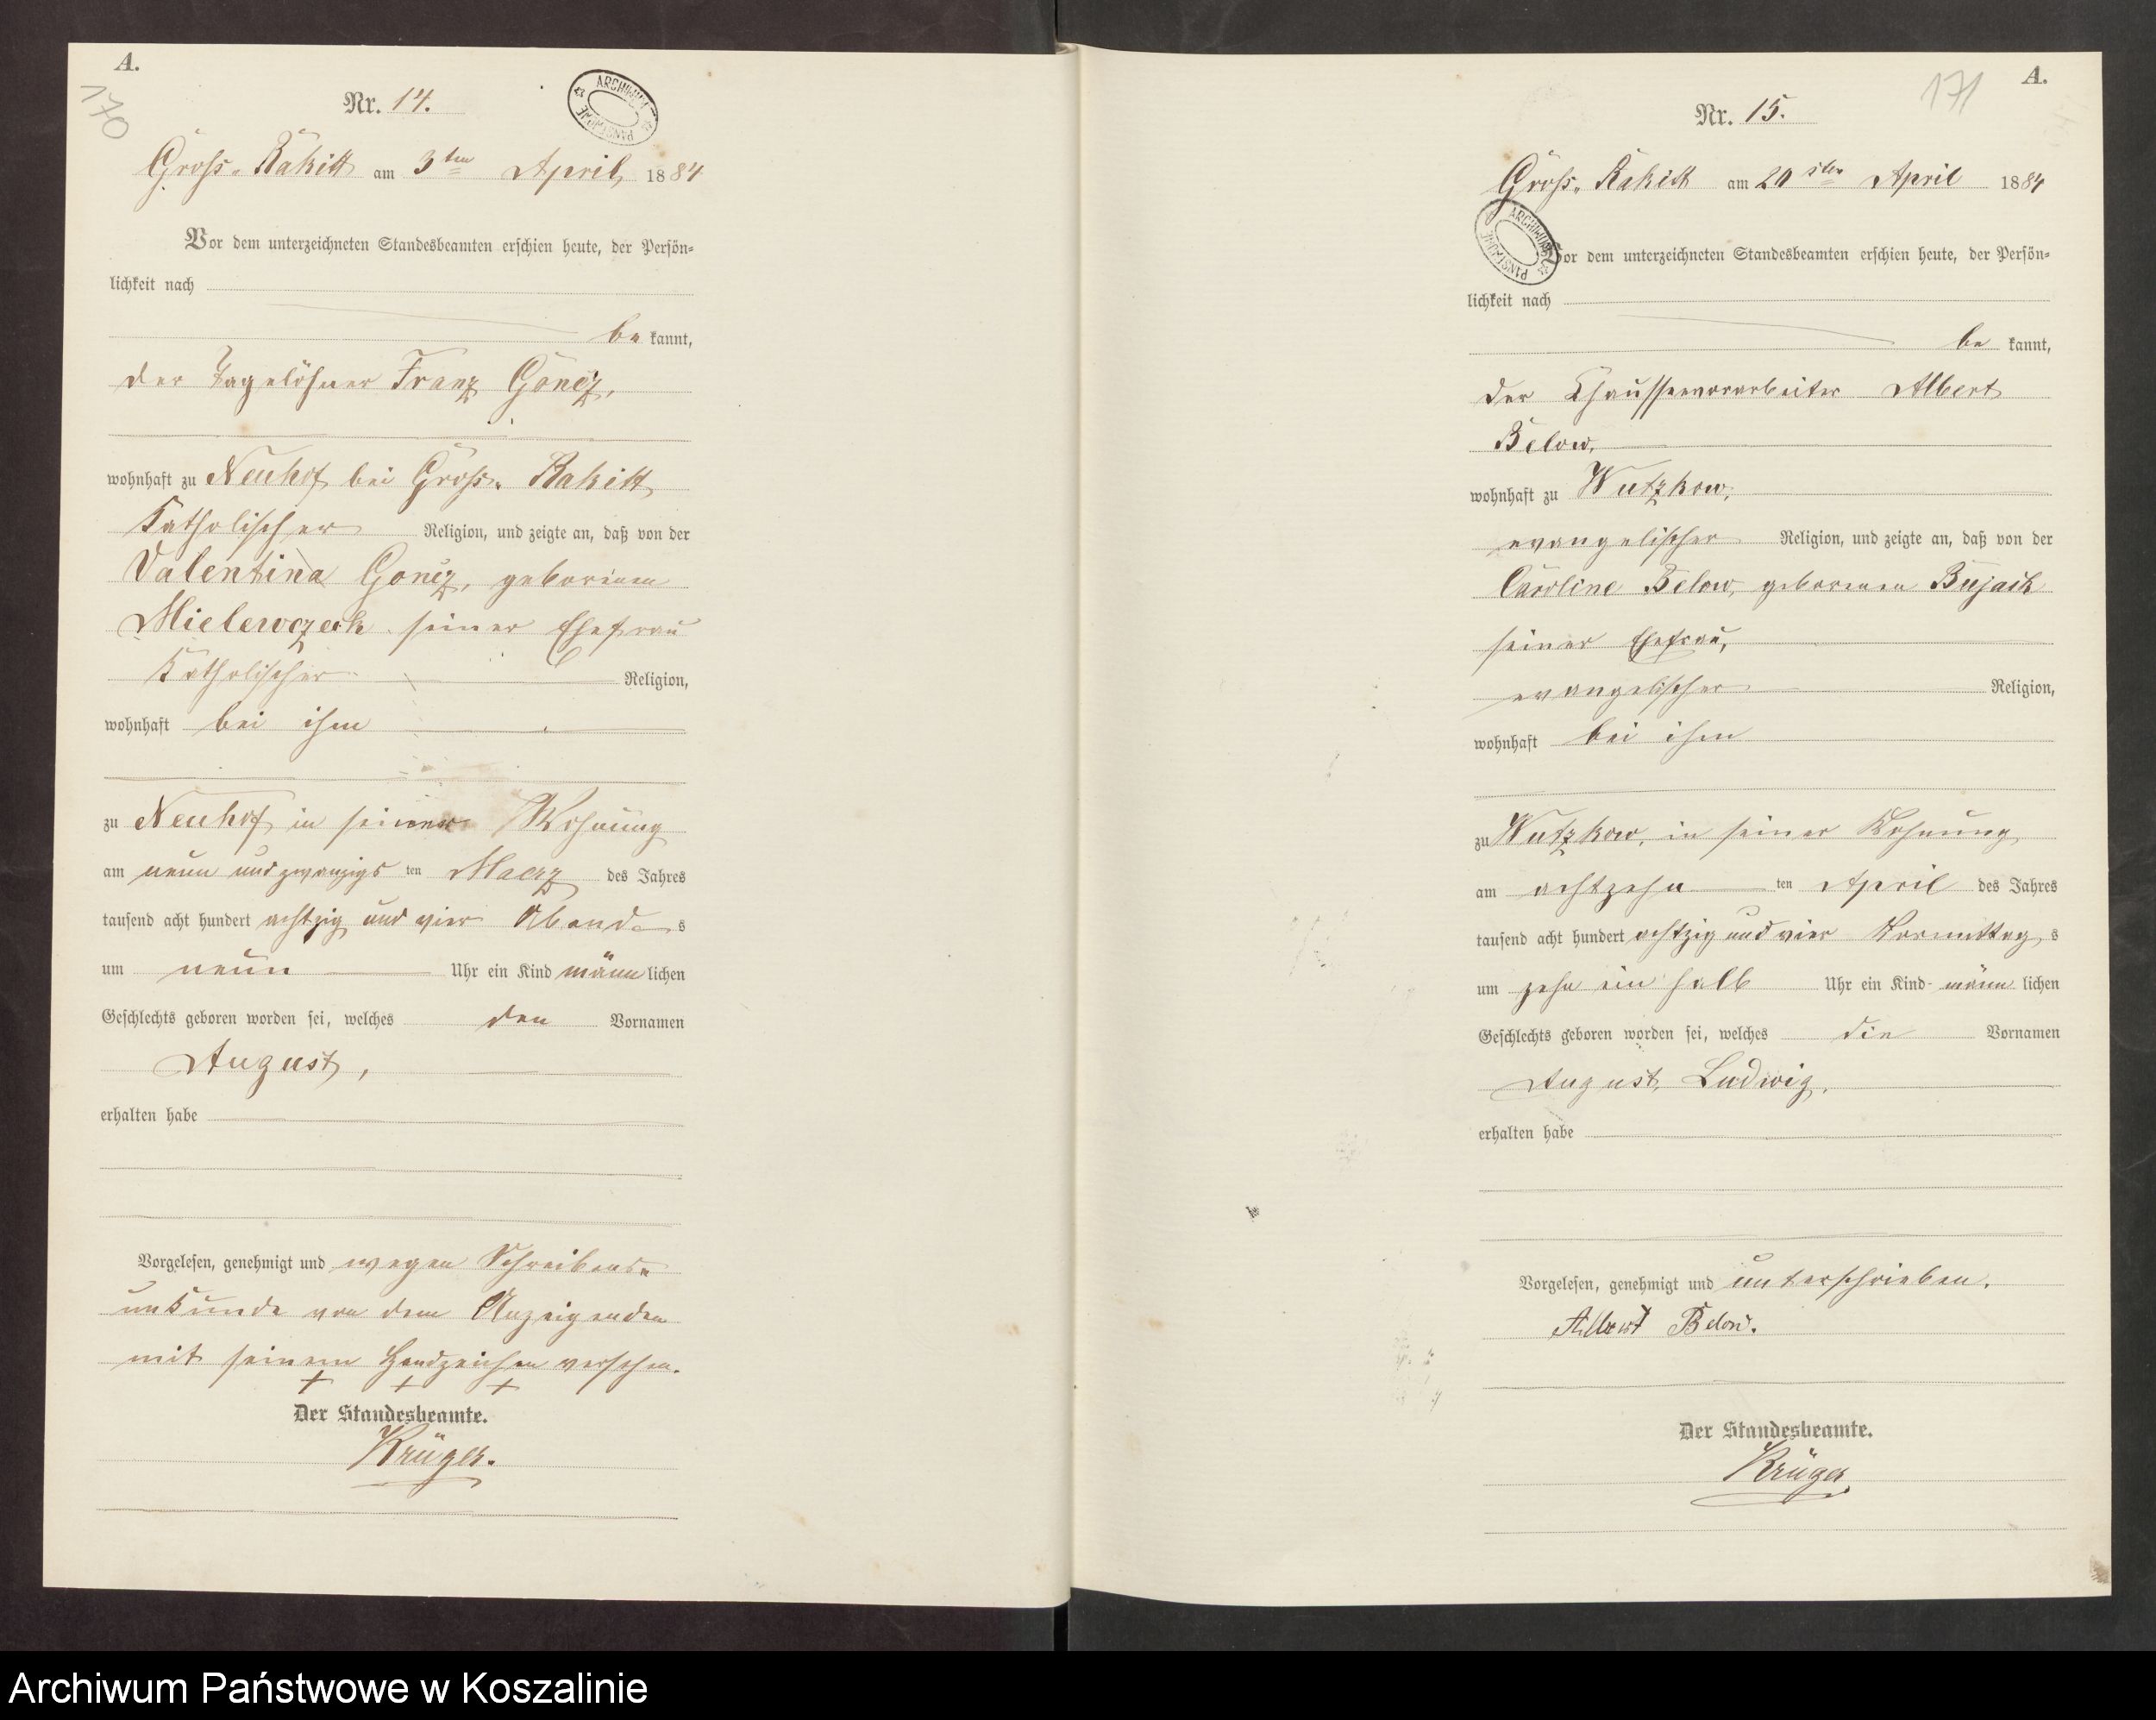 A.
170
Nr. 14.
ARCHIWUM PAŃSTWOWE
Gross-Rakitt am 3ten April 1884
Vor dem unterzeichneten Standesbeamten erschien heute, der Persön=
lichkeit nach
be kannt,
der Tagelöhner Franz Goncz,
wohnhaft zu Neuhof bei Gross-Rakitt
katholischer Religion, und zeigte an, daß von der
Valentina Goncz, geborenen
Mielewczeck seiner Ehefrau
katholischer Religion,
wohnhaft bei ihm
zu Neuhof in seiner Wohnung
am neun und zwanzigs ten Maerz des Jahres
tausend acht hundert achtzig und vier Abends
um neun Uhr ein Kind männ lichen
Geschlechts geboren worden sei, welches den Vornamen
August,
erhalten habe
Vorgelesen, genehmigt und wegen Schreibens-
unkunde von dem Anzeigenden
mit seinem Handzeichen versehen.
+ + +
Der Standesbeamte.
Krüger.
171
A.
Nr. 15.
Gross-Rakitt am sten April 1884
ARCHIWUM PAŃSTWOWE
Vor dem unterzeichneten Standesbeamten erschien heute, der Persön=
lichkeit nach
be kannt,
der Chausseevorarbeiter Albert
Below,
wohnhaft zu Wutzkow,
evangelischer Religion, und zeigte an, daß von der
Caroline Below, geborenen Bujack
seiner Ehefrau,
evangelischer Religion,
wohnhaft bei ihm
zu Wutzkow, in seiner Wohnung
am achtzehn ten April des Jahres
tausend acht hundert achtzig und vier Vormittags
um zehn ein halb Uhr ein Kind männ lichen
Geschlechts geboren worden sei, welches die Vornamen
August Ludwig,
erhalten habe
Vorgelesen, genehmigt und unterschrieben.
Albert Below.
Der Standesbeamte.
Krüger
Archiwum Państwowe w Koszalinie